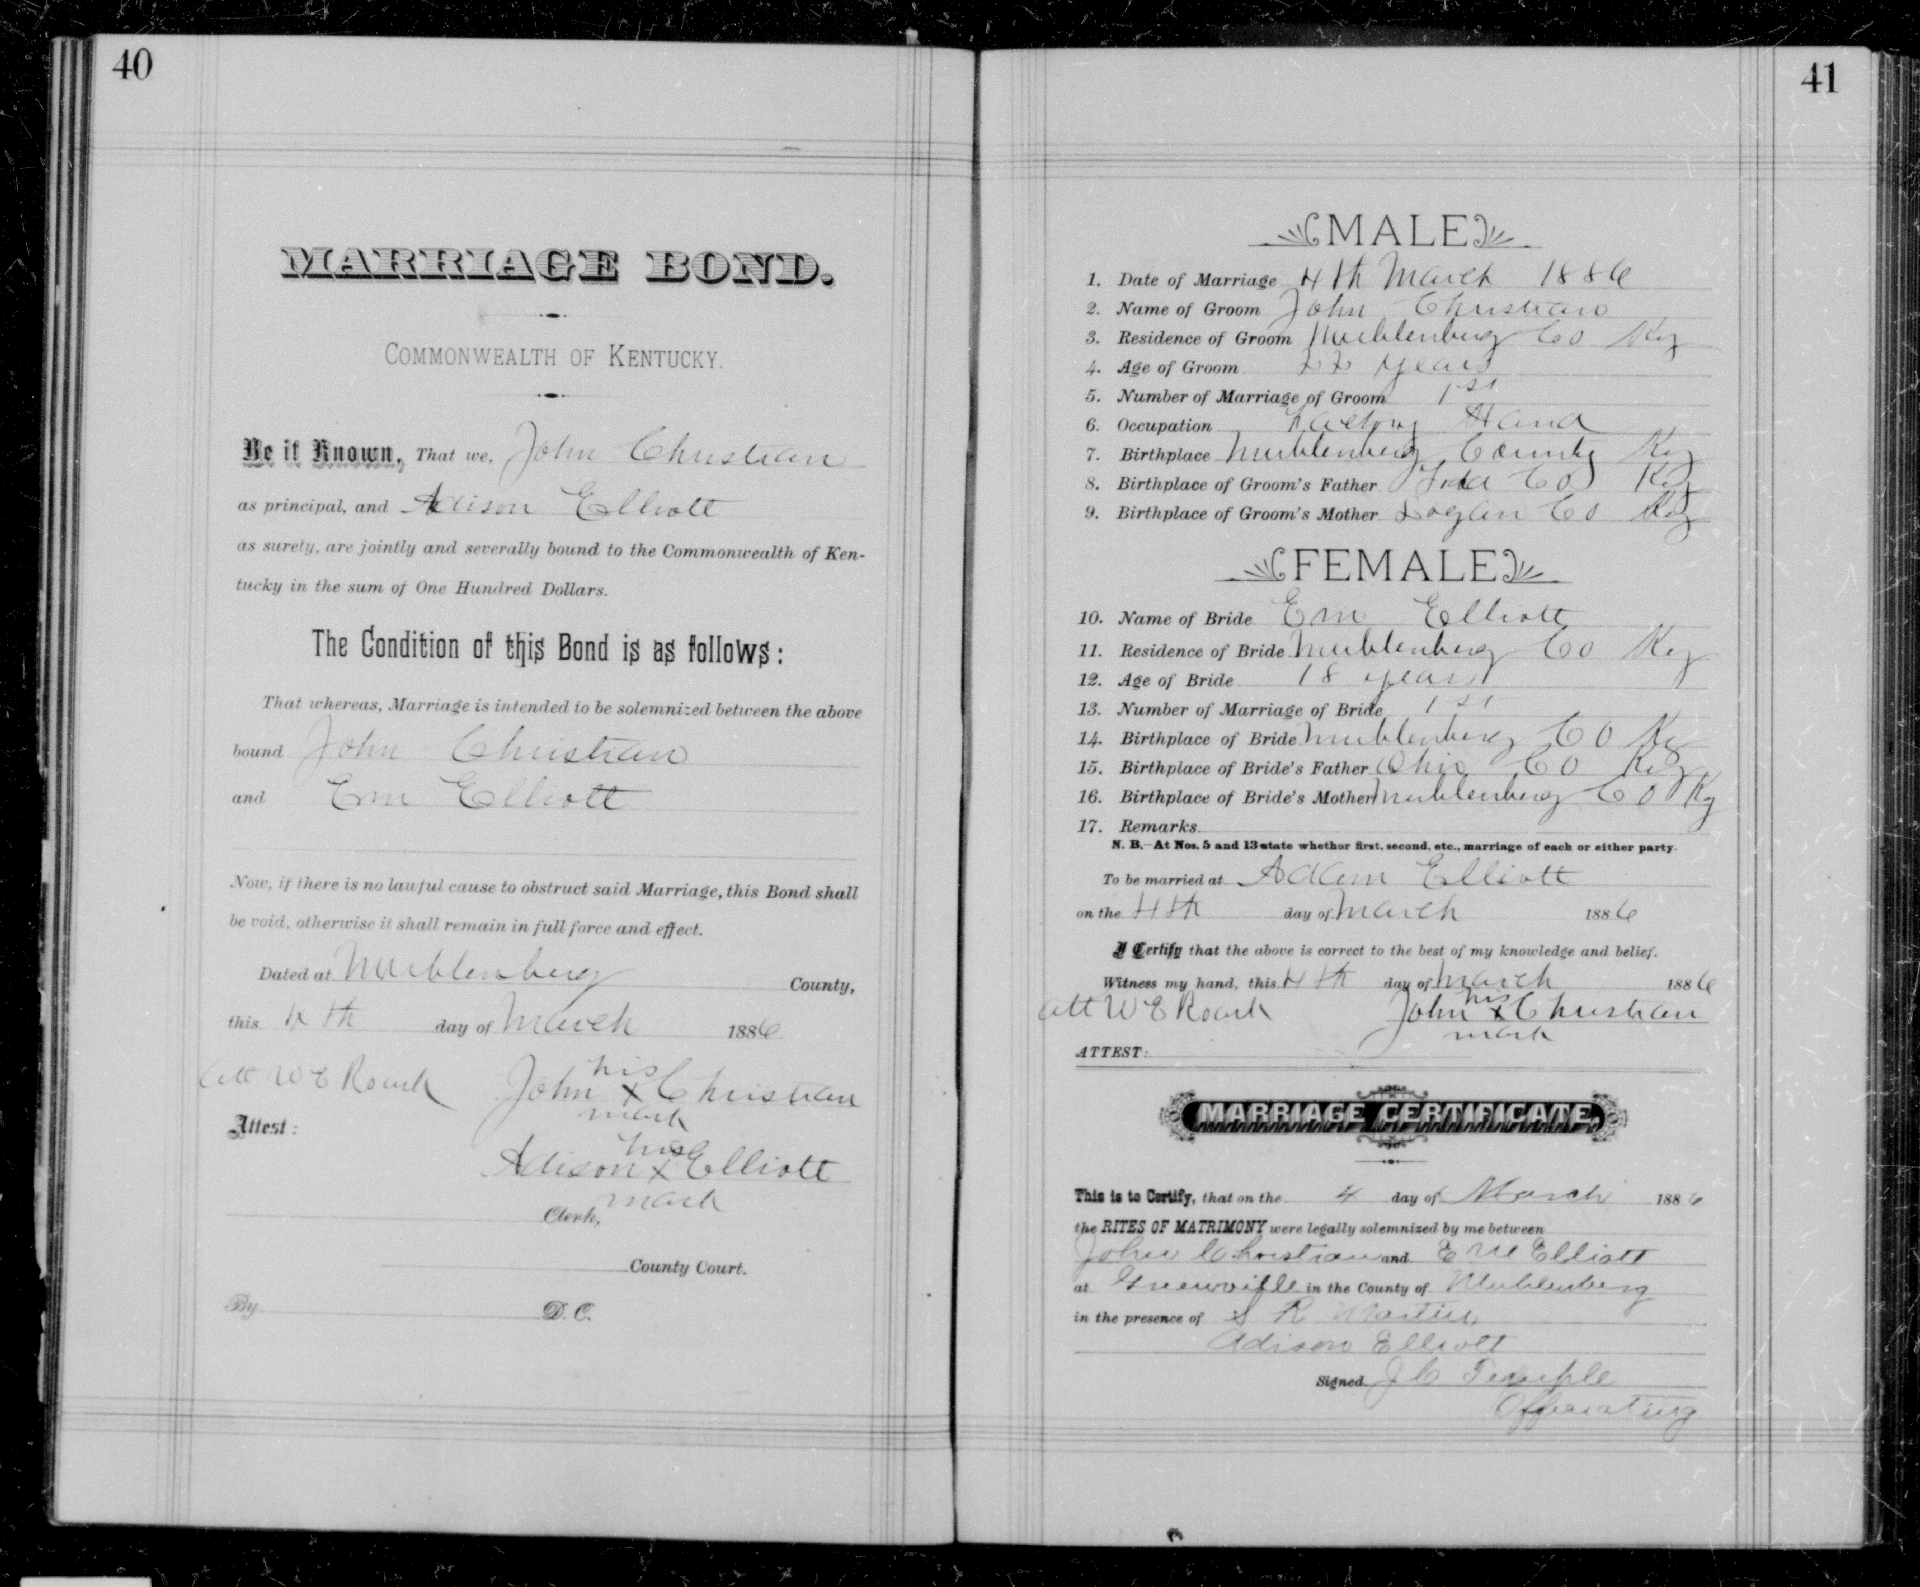 40
MARRIAGE BOND.
COMMONWEALTH OF KENTUCKY.
Be it Known, That we, John Christian
as principal, and Adison Elliott
as surety, are jointly and severally bound to the Commonwealth of Ken-
tucky in the sum of One Hundred Dollars.
The Condition of this Bond is as follows:
That whereas, Marriage is intended to be solemnized between the above
bound John Christian
and Em Elliott
Now, if there is no lawful cause to obstruct said Marriage, this Bond shall
be void, otherwise it shall remain in full force and effect.
Dated at Muhlenberg County,
this 4th day of March 1886
att W E Roark
his
John x Christian
mark
Attest:
his
Adison x Elliott
mark
Clerk,
County Court.
By D. C.
41
MALE
1. Date of Marriage 4th March 1886
2. Name of Groom John Christian
3. Residence of Groom Muhlenberg Co Ky
4. Age of Groom 22 years
5. Number of Marriage of Groom 1st
6. Occupation Factory Hand
7. Birthplace Muhlenberg County Ky
8. Birthplace of Groom's Father Todd Co Ky
9. Birthplace of Groom's Mother Logan Co Ky
FEMALE
10. Name of Bride Em Elliott
11. Residence of Bride Muhlenberg Co Ky
12. Age of Bride 18 years
13. Number of Marriage of Bride 1st
14. Birthplace of Bride Muhlenberg Co Ky
15. Birthplace of Bride's Father Ohio Co Ky
16. Birthplace of Bride's Mother Muhlenberg Co Ky
17. Remarks
N. B.—At Nos. 5 and 13 state whether first, second, etc., marriage of each or either party.
To be married at Elliott
on the 4th day of March 1886
I Certify that the above is correct to the best of my knowledge and belief.
Witness my hand, this 4th day of March 1886
att W E Roark
his
John x Christian
mark
ATTEST:
MARRIAGE CERTIFICATE.
This is to Certify, that on the 4 day of March 1886
the RITES OF MATRIMONY were legally solemnized by me between
John Christian and E M Elliott
at Greenville in the County of Muhlenberg
in the presence of S R Martin
Adison Elliott
Signed J C Temple